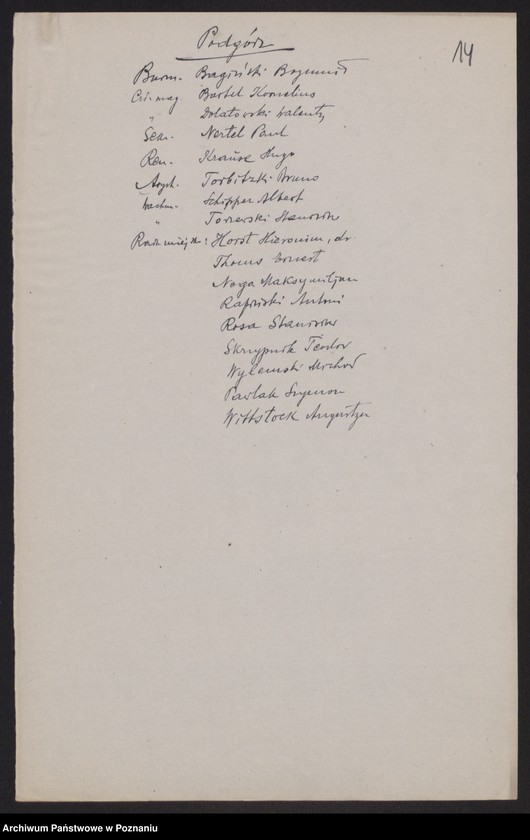 Podgórz
14
Burm. Bagiński Bogumił
Czł. mag. Bartel Kornelius
" Dolatowski Walenty
Sekr. Nertel Paul
Ren. Krause Hugo
Asyst. Torbitzki Bruno
Wachm. Schipper Albert
" Torzewski Stanisław
Rada miejska: Horst Hieronim, dr.
Thoms Ernest
Noga Maksymiljan
Rapiński Antoni
Rosa Stanisław
Skrzypnik Teodor
Wylemski Michał
Pawlak Szymon
Wittstock Augustyn
Archiwum Państwowe w Poznaniu